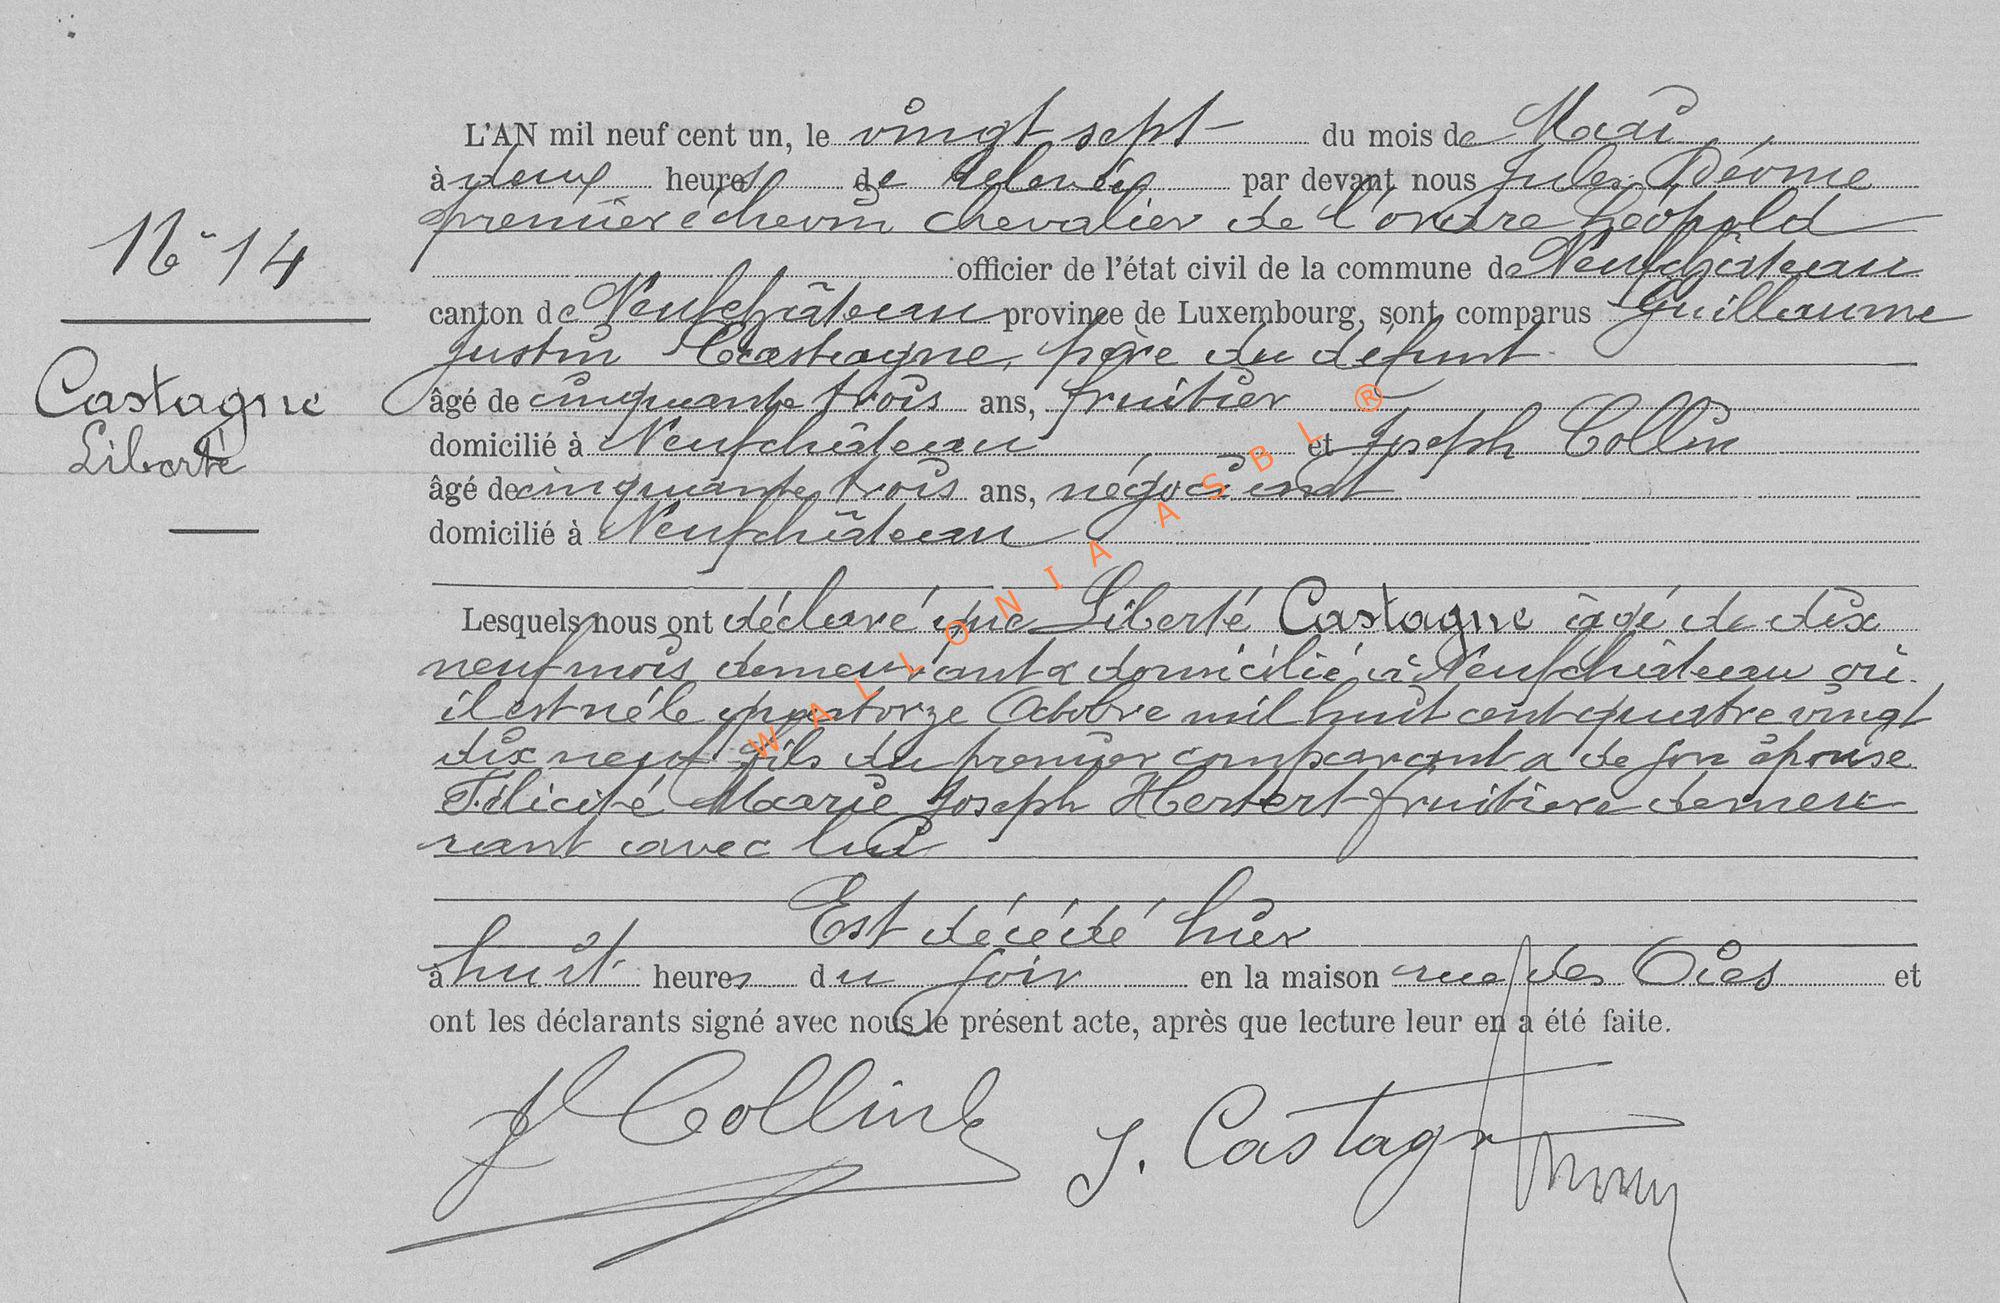 L'AN mil neuf cent un, le vingt sept du mois de Mai
à deux heures de relevée par devant nous Jules Dérome
premier échevin chevalier de l'ordre Léopold
officier de l'état civil de la commune de Neufchâteau
N° 14
canton de Neufchâteau province de Luxembourg, sont comparus Guillaume
Justin Castagne, père du défunt
Castagne
Liberté
âgé de cinquante trois ans, fruitier
domicilié à Neufchâteau et Joseph Collin
âgé de cinquante trois ans, négociant
domicilié à Neufchâteau
Lesquels nous ont déclaré que Liberté Castagne âgé de dix
neuf mois demeurant & domicilié à Neufchâteau où
il est né le quatorze Octobre mil huit cent quatre vingt
dix neuf fils du premier comparant & de son épouse
Félicité Marie Joseph Herbert fruitière demeu
rant avec lui
Est décédé hier
à huit heures du soir en la maison rue des Oies et
ont les déclarants signé avec nous le présent acte, après que lecture leur en a été faite.
J. Collin
J. Castagne
WALLONIA ASBL ®